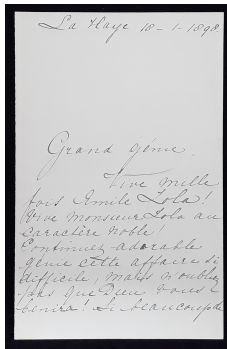 La Haye 18-1-1898.
Grand génie,
Vive mille
fois Emile Zola!
Vive monsieur Zola au
caractère noble!
Continuez adorable
génie cette affaire si
difficile, mais n'oubliez
pas que Dieu vous
benira! Si beaucoup de